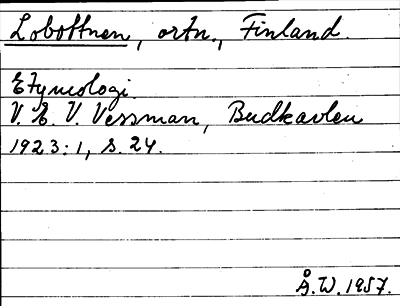 Lobottnen, ortn., Finland.
Etymologi.
V. E. V. Vessman, Budkavlen
1923:1, s. 24.
Å.W. 1957.